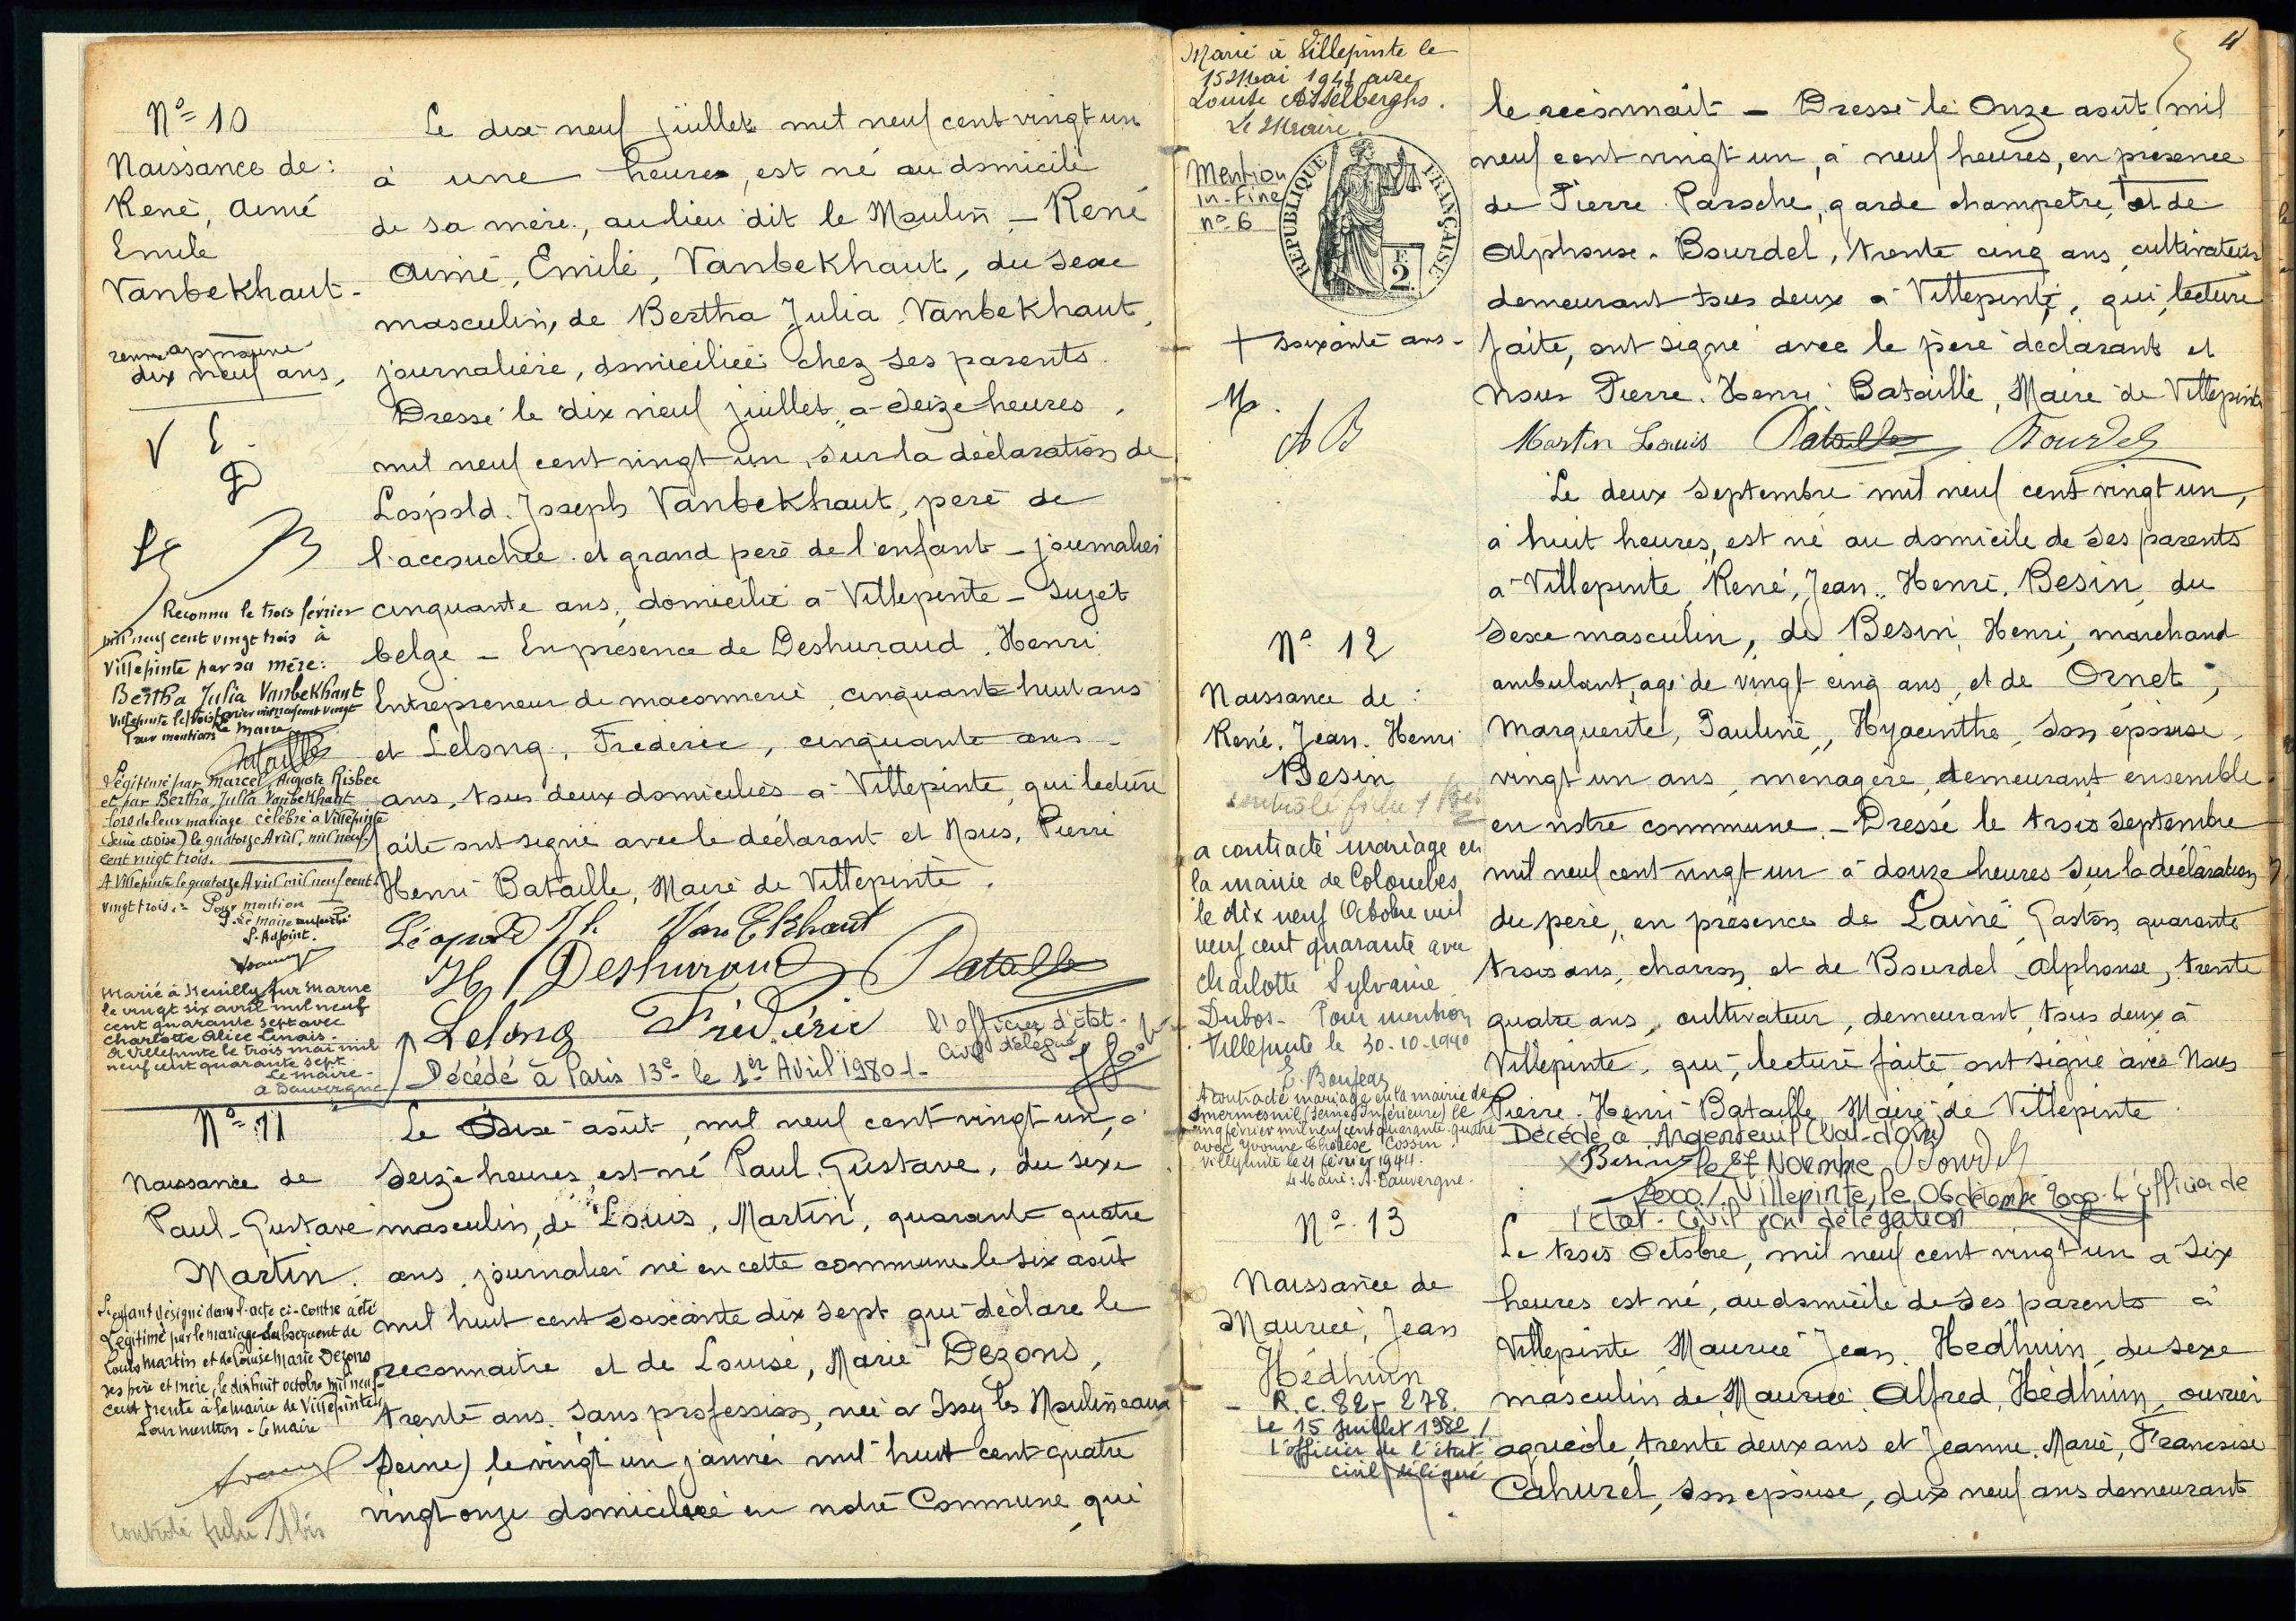 Nº 10
Naissance de :
René, Aimé
Emile
Vanbekhaut.
dix neuf ans,
V E.
D
B
Reconnu le trois février
mil neuf cent vingt trois à
Villepinte par sa mère :
Bertha Julia Vanbekhaut
Villepinte le trois février mil neuf cent vingt
Pour mention le Maire
Bataille
Légitimé par Marcel, Auguste Risbec
et par Bertha, Julia Vanbekhaut
lors de leur mariage célébré à Villepinte
(Seine et Oise) le quatorze Avril, mil neuf
cent vingt trois.
A Villepinte le quatorze Avril mil neuf cent
vingt trois. - Pour mention
P. Le Maire empêché
L'Adjoint.
Marié à Neuilly sur Marne
le vingt six avril mil neuf
cent quarante sept avec
Charlotte Alice Linais.
A Villepinte le trois mai mil
neuf cent quarante sept.
Le maire -
A Dauvergne
Le dix-neuf juillet mil neuf cent vingt un
à une heures, est né au domicile
de sa mère, au lieu dit le Moulin - René
Aimé, Emile, Vanbekhaut, du sexe
masculin, de Bertha Julia Vanbekhaut,
journalière, domiciliée chez ses parents.
Dressé le dix neuf juillet, à seize heures,
mil neuf cent vingt un, sur la déclaration de
Léopold. Joseph Vanbekhaut, père de
l'accouchée et grand père de l'enfant - journalier
cinquante ans, domicilié à Villepinte - sujet
belge - En présence de Deshuraud. Henri
Entrepreneur de maçonnerie, cinquante huit ans
et Lelong, Frédéric, cinquante ans -
ans, tous deux domiciliés à Villepinte, qui lecture
faite ont signé avec le déclarant et Nous, Pierre
Henri Bataille, Maire de Villepinte.
Léopold Van Ekhaut
H Deshuraud Bataille
Lelong Frédéric
l'officier d'état-
Civil délégué
Décédé à Paris 13e - le 1er Avril 1980 -
Nº 11
Naissance de
Paul-Gustave
Martin.
L'enfant désigné dans l'acte ci-contre a été
Légitimé par le mariage subséquent de
Louis Martin et de Louise Marie Dezons
ses père et mère, le dix huit octobre mil neuf
cent trente à la mairie de Villepinte
Pour mention - Le Maire
contrôlé fiche 1 bis
Le Dix août, mil neuf cent vingt un, à
seize heures, est né Paul. Gustave, du sexe
masculin, de Louis, Martin, quarante quatre
ans, journalier né en cette commune le six août
mil huit cent soixante dix sept qui déclare le
reconnaitre et de Louise, Marie Dezons,
trente ans, sans profession, née à Issy les Moulineaux
Seine) le vingt un janvier mil huit cent quatre
vingt onze domiciliée en notre Commune, qui
Marié à Villepinte le
15 Mai 1948 avec
Louise Asselberghs.
Le Maire.
Mention
in-fine
nº 6
REPUBLIQUE FRANÇAISE
2
+ soixante ans -
AB
4
le reconnaît - Dressé le Onze août mil
neuf cent vingt un, à neuf heures, en présence
de Pierre Parsche, garde champetre, + et de
Alphonse. Bourdel, trente cinq ans, cultivateur
demeurant tous deux à Villepinte, qui, lecture
faite, ont signé avec le père déclarant et
Nous Pierre. Henri. Bataille, Maire de Villepinte
Martin Louis Bataille Bourdel
Nº 12
Naissance de :
René. Jean. Henri
Besin
contrôlé fiche 1 bis
a contracté mariage en
la mairie de Colombes
le dix neuf Octobre mil
neuf cent quarante avec
Charlotte Sylvanie
Dubos - Pour mention
Villepinte le 30-10-1940
A contracté mariage en la mairie de
Smermesnil (Seine Inférieure) le
cinq février mil neuf cent quarante quatre
avec Yvonne Thérèse Cossin.
Villepinte le 21 février 1944.
Le Maire : A. Dauvergne.
Le deux septembre mil neuf cent vingt un,
à huit heures, est né au domicile de ses parents
à Villepinte, René, Jean. Henri. Besin, du
sexe masculin, de Besin, Henri, marchand
ambulant, agé de vingt cinq ans, et de Ornet,
Marguerite, Pauline, Hyacinthe, son épouse,
vingt un ans, ménagère, demeurant ensemble
en notre commune. - Dressé le trois septembre
mil neuf cent vingt un à douze heures sur la déclaration
du père, en présence de Lainé Gaston, quarante
trois ans, charron, et de Bourdel Alphonse, trente
quatre ans, cultivateur, demeurant, tous deux à
Villepinte, qui, lecture faite ont signé avec Nous
Pierre. Henri Bataille Maire de Villepinte
Décédé à Argenteuil (Val-d'Oise)
Besin le 27 Novembre Bourdel
2000/. Villepinte, le 06 décembre 2000. L'officier de
l'état-civil par délégation
Nº 13
Naissance de
Maurice, Jean
Hédhuin
R.C. 82 - 278.
Le 15 Juillet 1982 /
l'officier de l'état
civil délégué
Le trois Octobre, mil neuf cent vingt un à six
heures est né, au domicile de ses parents à
Villepinte Maurice Jean. Hédhuin, du sexe
masculin de Maurice. Alfred. Hédhuin, ouvrier
agricole, trente deux ans et Jeanne. Marie, Françoise
Cahurel, son épouse, dix neuf ans demeurants